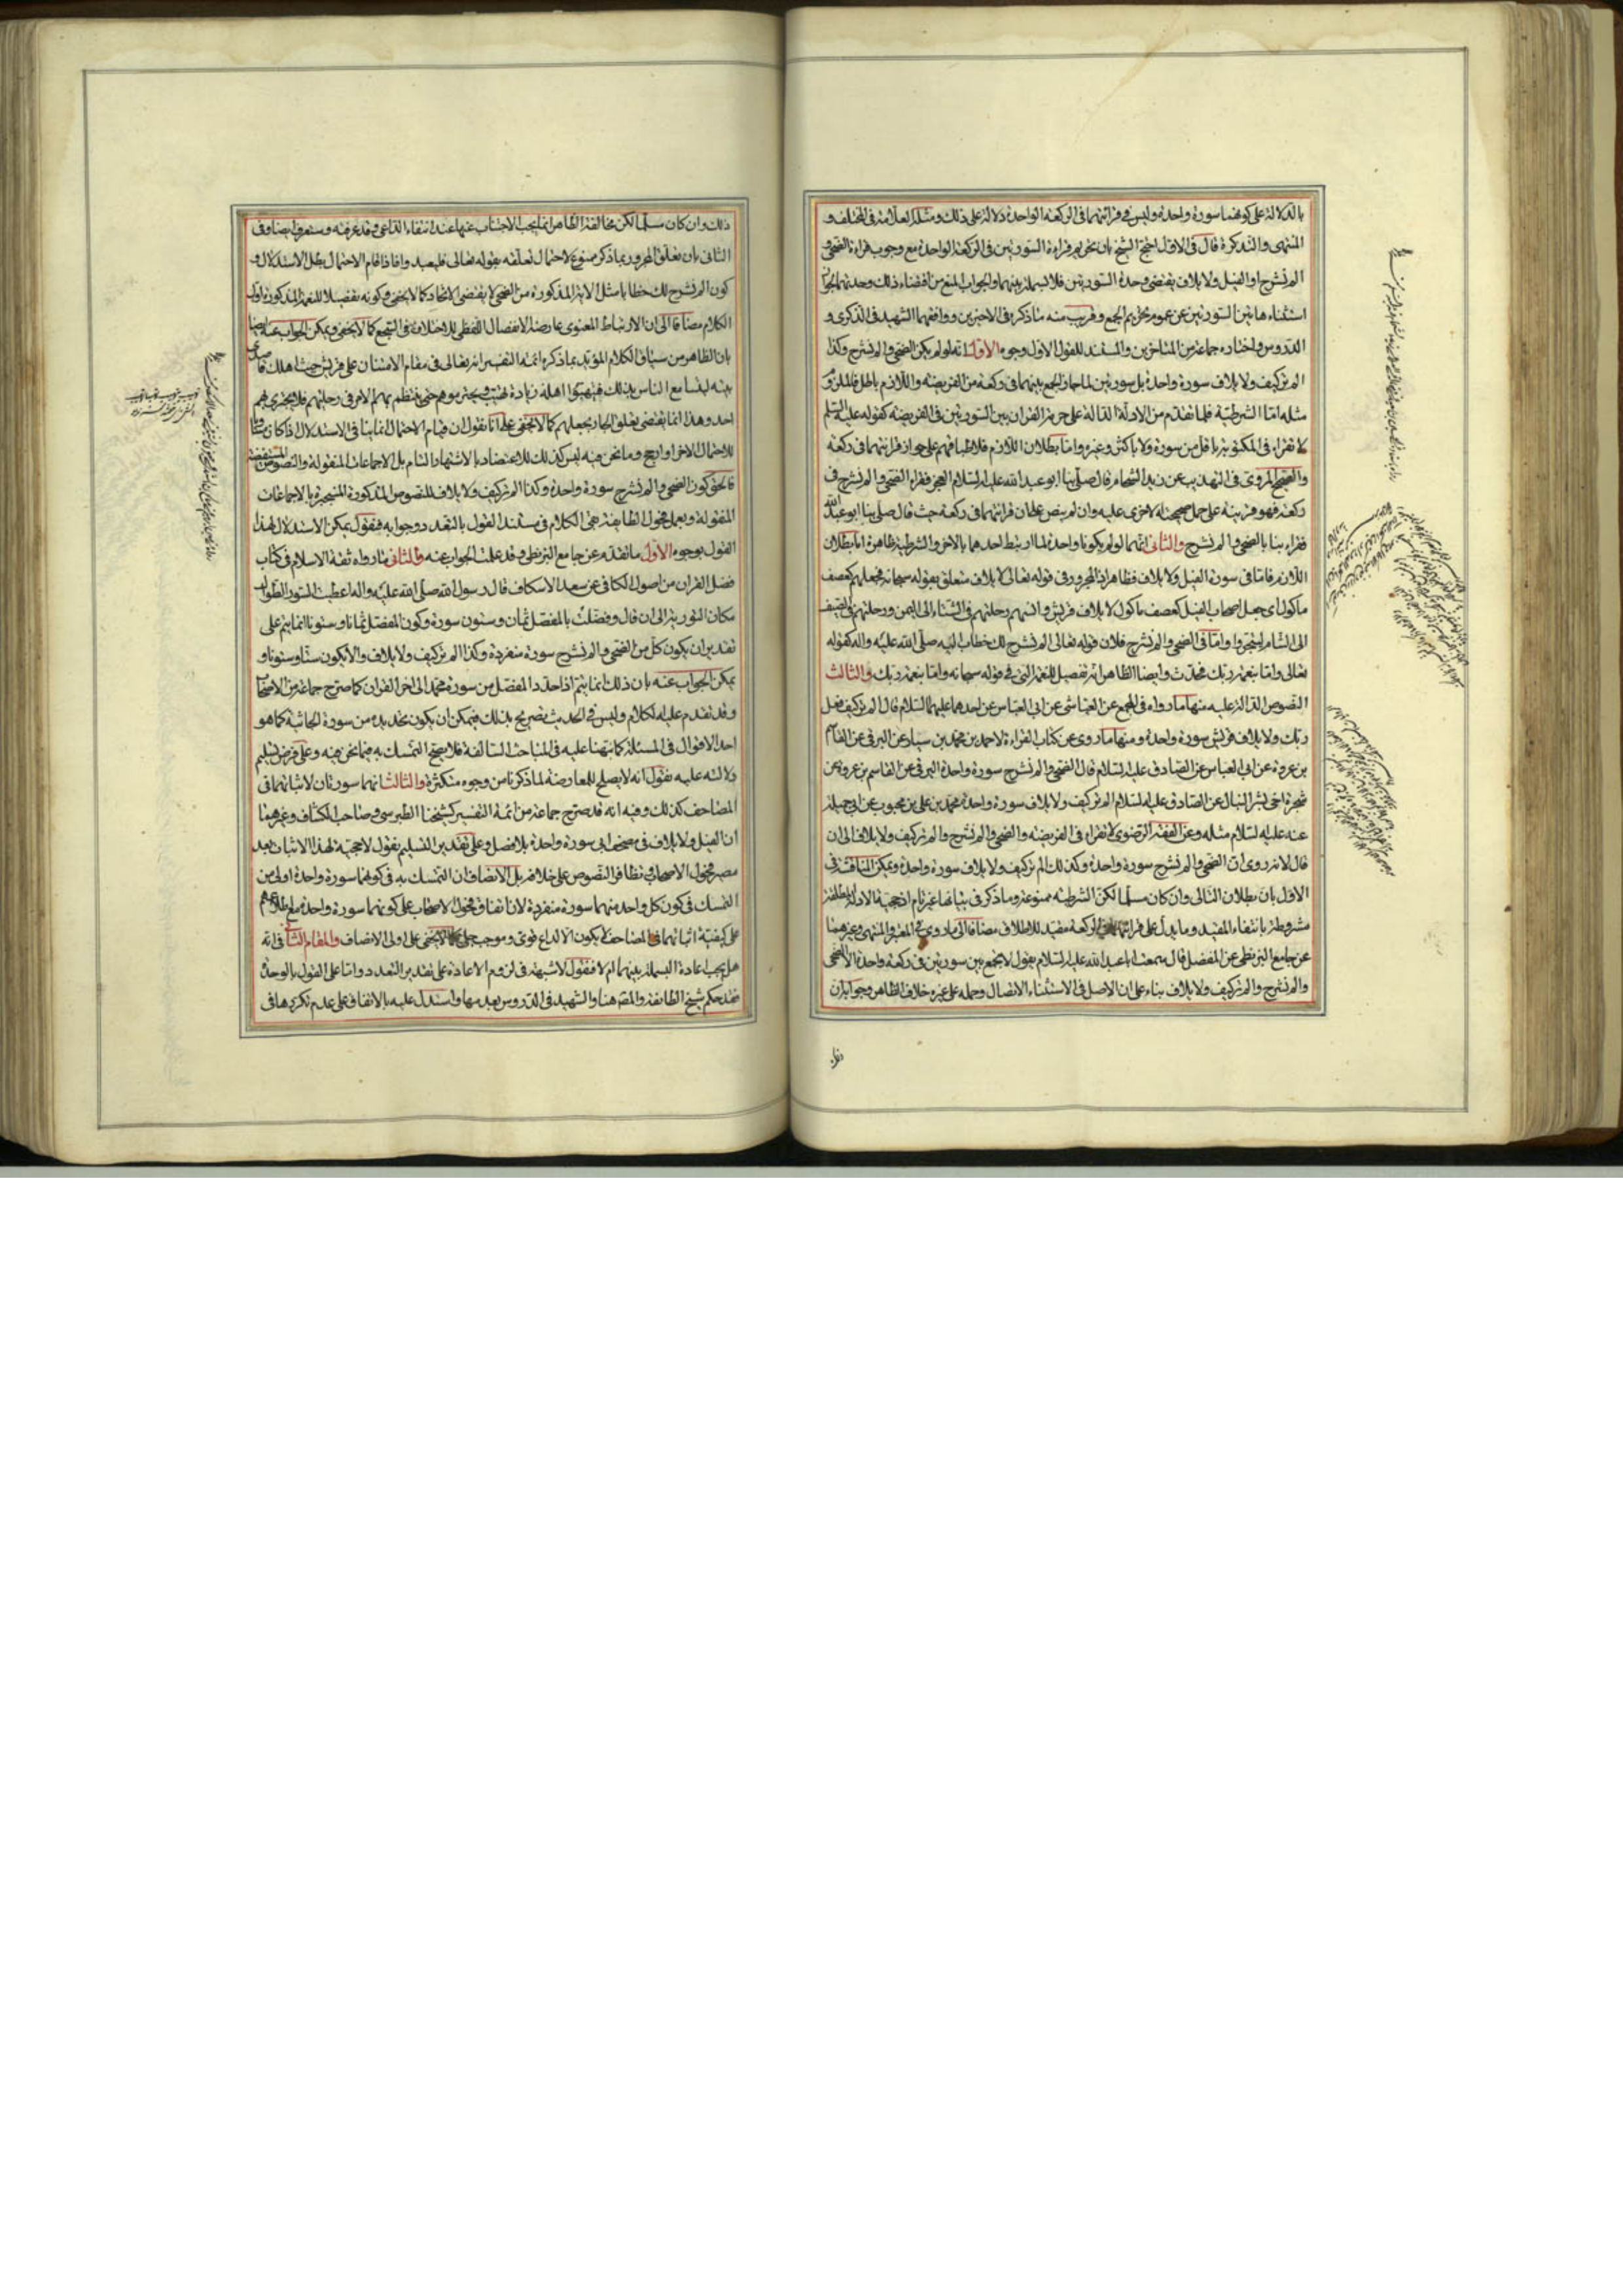 بالدلالة على كونهما سورة واحدة وليس في قرائتهما في الركعة الواحدة دلالة على ذلك ومثله العلامة في المختلف و
المنتهى والتذكرة قال في الاول احتج الشيخ بان تحريم قراءة السورتين في الركعة الواحدة مع وجوب قراءة الضحى و
الم نشرح او الفيل ولايلاف يقتضي وحدة السورتين فلا بسملة بينهما والجواب المنع من اقتضاء ذلك وحدتهما لجواز
استثناء هاتين السورتين عن عموم تحريم الجمع وقريب منه ما ذكره في الاخيرين ووافقهما الشهيد في الذكرى و
الدروس واختاره جماعة من المتاخرين والمستند للقول الاول وجوه الاول انه لو لم يكن الضحى والم نشرح وكذا
الم تر كيف ولايلاف سورة واحدة بل سورتين لما جاز الجمع بينهما في ركعة من الفريضة واللازم باطل فالملزوم
مثله اما الشرطية فلما تقدم من الادلة الدالة على حرمة القران بين السورتين في الفريضة كقوله عليه السلم
لا تقراء في المكتوبة باقل من سورة ولا باكثر وغيره واما بطلان اللازم فلاطباقهم على جواز قرائتهما في ركعة
والصحيح المروي في التهذيب عن زيد الشحام قال صلى بنا ابو عبد الله عليه السلام الفجر فقراء الضحى والم نشرح في
ركعة فهو قرينة على حمل صحيحته الاخرى عليه وان لم ينص على ان قرائتهما في ركعة حيث قال صلى بنا ابو عبد الله
فقراء بنا بالضحى والم نشرح والثاني انهما لو لم يكونا واحدة لما ارتبط احدهما بالاخر والشرطية ظاهرة اما بطلان
اللازم فاما في سورة الفيل ولايلاف فظاهر اذ المجرور في قوله تعالى لايلاف متعلق بقوله سبحانه فجعلهم كعصف
ماكول اي جعل اصحاب الفيل كعصف ماكول لايلاف قريش والتهم رحلتهم في الشتاء الى اليمن ورحلتهم في الصيف
الى الشام ليتجروا واما في الضحى والم نشرح فلان قوله تعالى الم نشرح لك خطاب لنبيه صلى الله عليه واله كقوله
تعالى واما بنعمة ربك فحدث وايضا الظاهر انه تفصيل للنعمة التي في قوله سبحانه واما بنعمة ربك والثالث
النصوص الدالة عليه منها ما رواه في المجمع عن العياشي عن ابي العباس عن احدهما عليهما السلام قال الم تر كيف فعل
ربك ولايلاف قريش سورة واحدة ومنها ما روي عن كتاب القراءة لاحمد بن محمد بن سيار عن البرقي عن القاسم
بن عروة عن ابي العباس عن الصادق عليه السلام قال الضحى والم نشرح سورة واحدة البرقي عن القاسم بن عروة عن
شجرة اخي بشر النبال عن الصادق عليه السلام الم تر كيف ولايلاف سورة واحدة محمد بن علي بن محبوب عن ابي جميلة
عنه عليه السلام مثله وعن الفقه الرضوي لا تقراء في الفريضة والضحى والم نشرح والم تر كيف ولايلاف الى ان
قال لانه روي ان الضحى والم نشرح سورة واحدة وكذلك الم تر كيف ولايلاف سورة واحدة ويمكن المناقشة في
الاول بان بطلان التالي وان كان مسلما لكن الشرطية ممنوعة وما ذكر في بيانها غير تام اذ حجية الادلة المطلقة
مشروطة بانتفاء المقيد وما يدل على قرائتهما في الركعة مقيد للاطلاق مضافا الى ما روي في المعتبر والمنتهى وغيرهما
عن جامع البزنطي عن المفضل قال سمعت ابا عبد الله عليه السلام يقول لا يجمع بين سورتين في ركعة واحدة الا الضحى
والم نشرح والم تر كيف ولايلاف بناء على ان الاصل في الاستثناء الاتصال وحمله على غيره خلاف الظاهر وجوابه ان
ذلك وان كان مسلما لكن مخالفة الظاهر انما يجب الاجتناب عنها عند انتفاء الداعي وقد عرفته وستعرف ايضا وفي
الثاني بان تعلق المجرور بما ذكر ممنوع لاحتمال تعلقه بقوله تعالى فليعبدوا فاذا قام الاحتمال بطل الاستدلال و
كون الم نشرح لك خطابا مثل الاية المذكورة من الضحى لا يقتضي الاتحاد كما لا يخفى وكونه تفصيلا للنعمة المذكورة اول
الكلام مضافا الى ان الارتباط المعنوي عارضه الانفصال اللفظي للاختلاف في السجع كما لا يخفى ويمكن الجواب عنه ايضا
بان الظاهر من سياق الكلام المؤيد بما ذكره ائمة التفسير انه تعالى في مقام الامتنان على قريش حيث اهلك قاصدي
بيته ليتسامع الناس بذلك فيهيبوا اهله زيادة تهيب ويحترموهم حتى ينتظم بهم الامر في رحلتهم فلا يجترئ عليهم
احد وهذا انما يقتضي تعلق الجار بجعلهم كما لا يخفى على انا نقول ان قيام الاحتمال انما ينافي الاستدلال اذا كان مساويا
للاحتمال الاخر او ارجح وما نحن فيه ليس كذلك للاعتضاد بالاشتهار التام بل الاجماعات المنقولة والنصوص المستفيضة
فالحق كون الضحى والم نشرح سورة واحدة وكذا الم تر كيف ولايلاف للنصوص المذكورة المنجبرة بالاجماعات
المنقولة وبعمل فحول الطايفة بقي الكلام في مستند القول بالتعدد وجوابه فنقول يمكن الاستدلال لهذا
القول بوجوه الاول ما تقدم عن جامع البزنطي وقد علمت الجواب عنه والثاني ما رواه ثقة الاسلام في كتاب
فضل القران من اصول الكافي عن سعد الاسكاف قال رسول الله صلى الله عليه واله اعطيت السور الطوال
مكان التورية الى ان قال وفضلت بالمفصل ثمان وستون سورة وكون المفصل ثمانا وستونا انما يتم على
تقدير ان يكون كل من الضحى والم نشرح سورة منفردة وكذا الم تر كيف ولايلاف والا يكون ستا وستونا و
يمكن الجواب عنه بان ذلك انما يتم اذا حددنا المفصل من سورة محمد الى اخر القران كما صرح جماعة من الاصحاب
وقد تقدم عليه الكلام وليس في الحديث تصريح بذلك فيمكن ان يكون تحديده من سورة الجاثية كما هو
احد الاقوال في المسئلة كما نبهنا عليه في المباحث السالفة فلا يصح التمسك به فيما نحن فيه وعلى فرض تسليم
دلالته عليه نقول انه لا يصلح للمعارضة لما ذكرنا من وجوه متكثرة والثالث انهما سورتان لاثباتهما في
المصاحف كذلك وفيه انه قد صرح جماعة من ائمة التفسير كشيخنا الطبرسي وصاحب الكشاف وغيرهما
ان الفيل ولايلاف في مصحف ابي سورة واحدة بلا فصل وعلى تقدير التسليم نقول لا حجية لهذا الاثبات بعد
مصير فحول الاصحاب وتظافر النصوص على خلافه بل الانصاف ان التمسك به في كونهما سورة واحدة اولى من
التمسك في كون كل واحد منهما سورة منفردة لان اتفاق فحول الاصحاب على كونهما سورة واحدة مع اطلاعهم
على كيفية اثباتهما في المصاحف لا يكون الا لداع قوي وموجب جلي كما لا يخفى على اولي الانصاف والمقام الثاني في انه
هل يجب اعادة البسملة بينهما ام لا فنقول لا شبهة في لزوم الاعادة على تقدير التعدد واما على القول بالوحدة
فقد حكم شيخ الطائفة والمص هنا والشهيد في الدروس بعدمها واستدل عليه بالاتفاق على عدم تكررها في